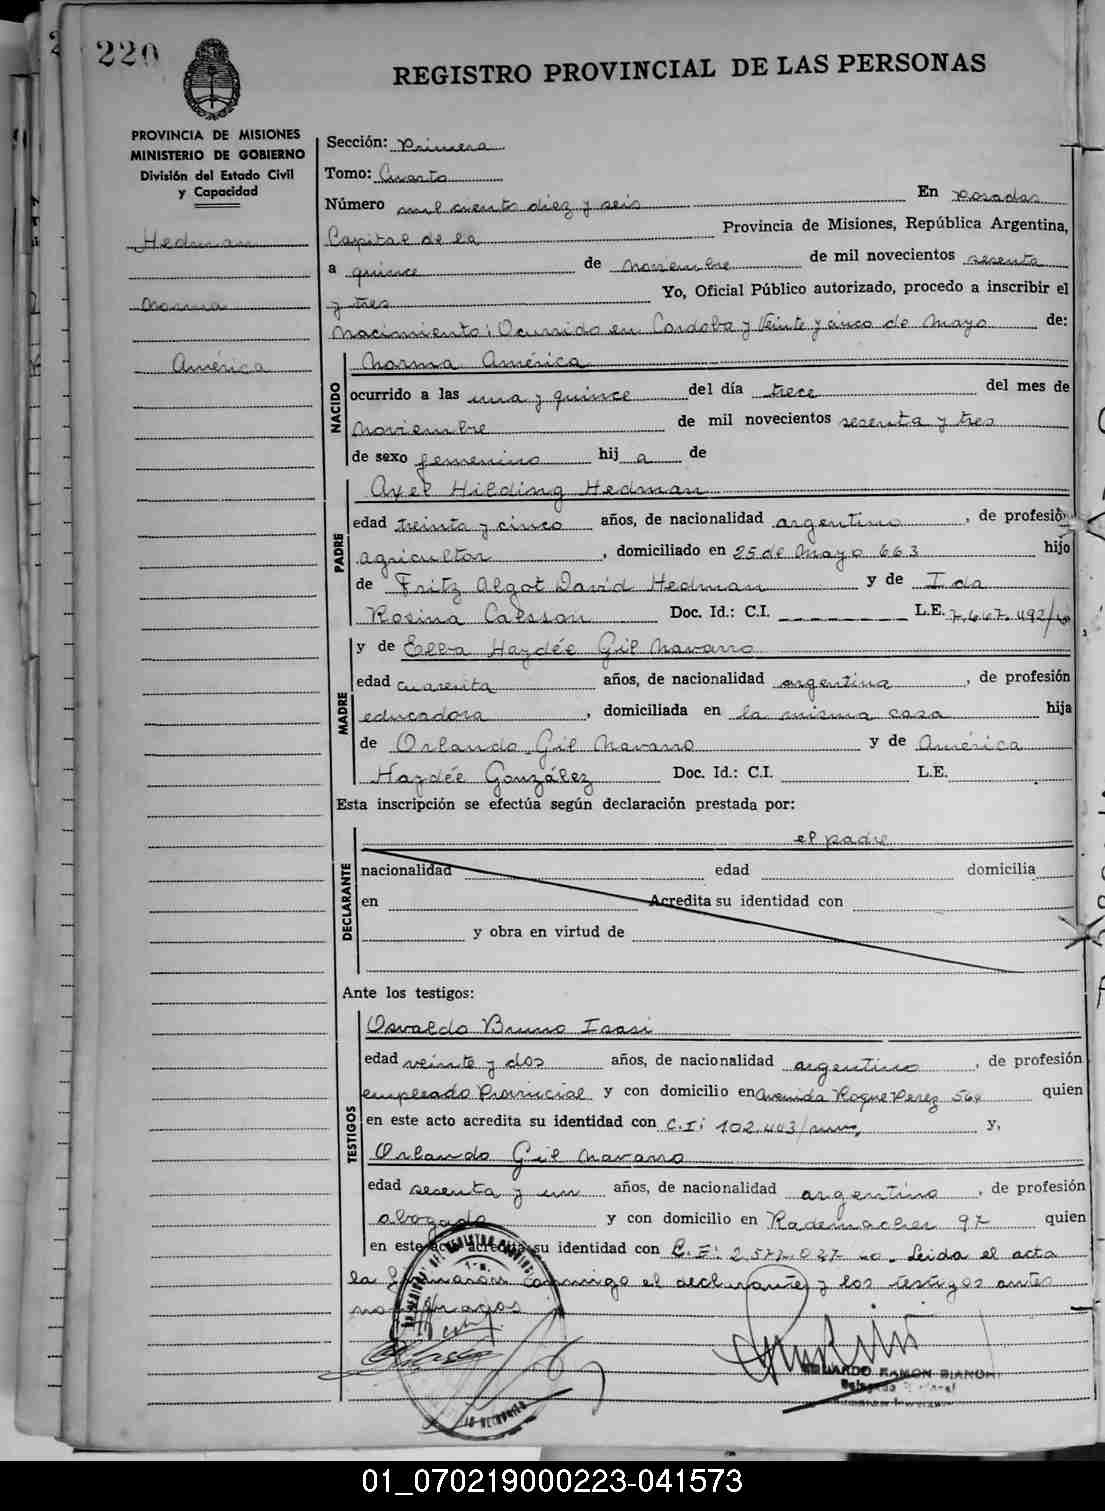 220
REGISTRO PROVINCIAL DE LAS PERSONAS
PROVINCIA DE MISIONES
MINISTERIO DE GOBIERNO
División del Estado Civil
y Capacidad
Hedman
Norma
América
Sección: Primera
Tomo: Cuarto
Número mil ciento diez y seis En Posadas
Capital de la Provincia de Misiones, República Argentina,
a quince de noviembre de mil novecientos sesenta
y tres Yo, Oficial Público autorizado, procedo a inscribir el
nacimiento: Ocurrido en Cordoba y Veinte y cinco de Mayo de:
NACIDO
Norma América
ocurrido a las una y quince del día trece del mes de
noviembre de mil novecientos sesenta y tres
de sexo femenino hij a de
PADRE
Axel Hilding Hedman
edad treinta y cinco años, de nacionalidad argentino, de profesió
agricultor, domiciliado en 25 de Mayo 663 hijo
de Fritz Algot David Hedman y de Ida
Rosina Calsson Doc. Id.: C.I. L.E. 7.447.492/
MADRE
y de Elba Haydée Gil Navarro
edad cuarenta años, de nacionalidad argentina, de profesión
educadora, domiciliada en la misma casa hija
de Orlando Gil Navarro y de América
Haydée González Doc. Id.: C.I. L.E.
Esta inscripción se efectúa según declaración prestada por:
DECLARANTE
el padre
nacionalidad edad domicilia
en Acredita su identidad con
y obra en virtud de
Ante los testigos:
TESTIGOS
Osvaldo Bruno Isasi
edad veinte y dos años, de nacionalidad argentino, de profesión
empleado Provincial y con domicilio en Avenida Roque Perez 564 quien
en este acto acredita su identidad con C.I: 102.443/ y,
Orlando Gil Navarro
edad sesenta y un años, de nacionalidad argentino, de profesión
abogado y con domicilio en Rademacher 97 quien
en este acto acredita su identidad con C.I: 2.572.037 Leida el acta
la firmaron conmigo el declarante y los testigos antes
EDUARDO RAMON BIANCHI
01_070219000223-041573